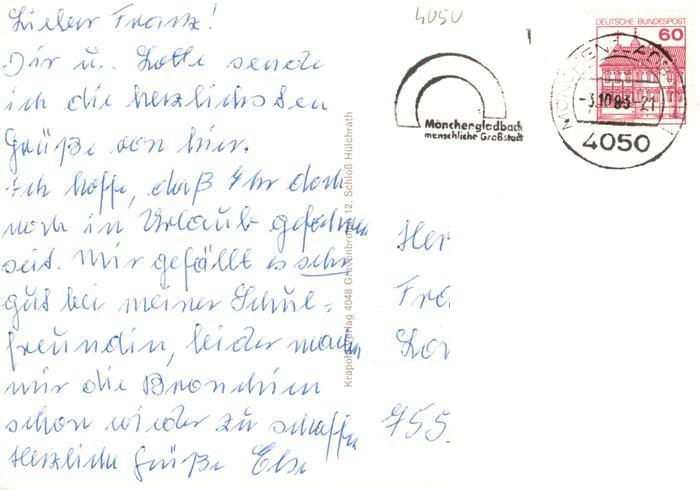 Lieber Franz!
Dir u. Lotte sende
ich die herzlichsten
Grüße von hier.
Ich hoffe, daß Ihr doch
noch in Urlaub gefahren
seit. Mir gefällt es sehr
gut bei meiner Schul=
freundin, leider machen
mir die Bronchien
schon wieder zu schaffen
Herzliche Grüße Else
Krapohl-Verlag 4048 Grevenbroich 12, Schloß Hülchrath
4050
Mönchengladbach
menschliche Großstadt
DEUTSCHE BUNDESPOST
60
MÖNCHENGLADBACH 1
-3.10.83-21
4050
Her
Fra
Lor
755